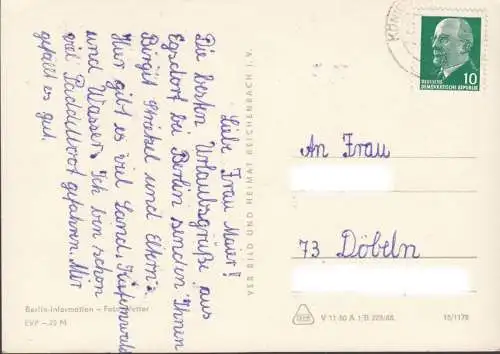 Liebe Frau Maier!
Die besten Urlaubsgrüße aus
Egsdorf bei Berlin senden Ihnen
Birgit und Eltern.
Hier gibt es viel Sand, Kiefernwald
und Wasser. Ich bin schon
viel Paddelboot gefahren. Mir
gefällt es gut.
Berlin-Information –
EVP –,20 M
VEB BILD UND HEIMAT REICHENBACH I. V.
KÖNIG
10
DEUTSCHE
DEMOKRATISCHE REPUBLIK
An Frau
73 Döbeln
V 11 50 A 1/B 225/68
15/1178